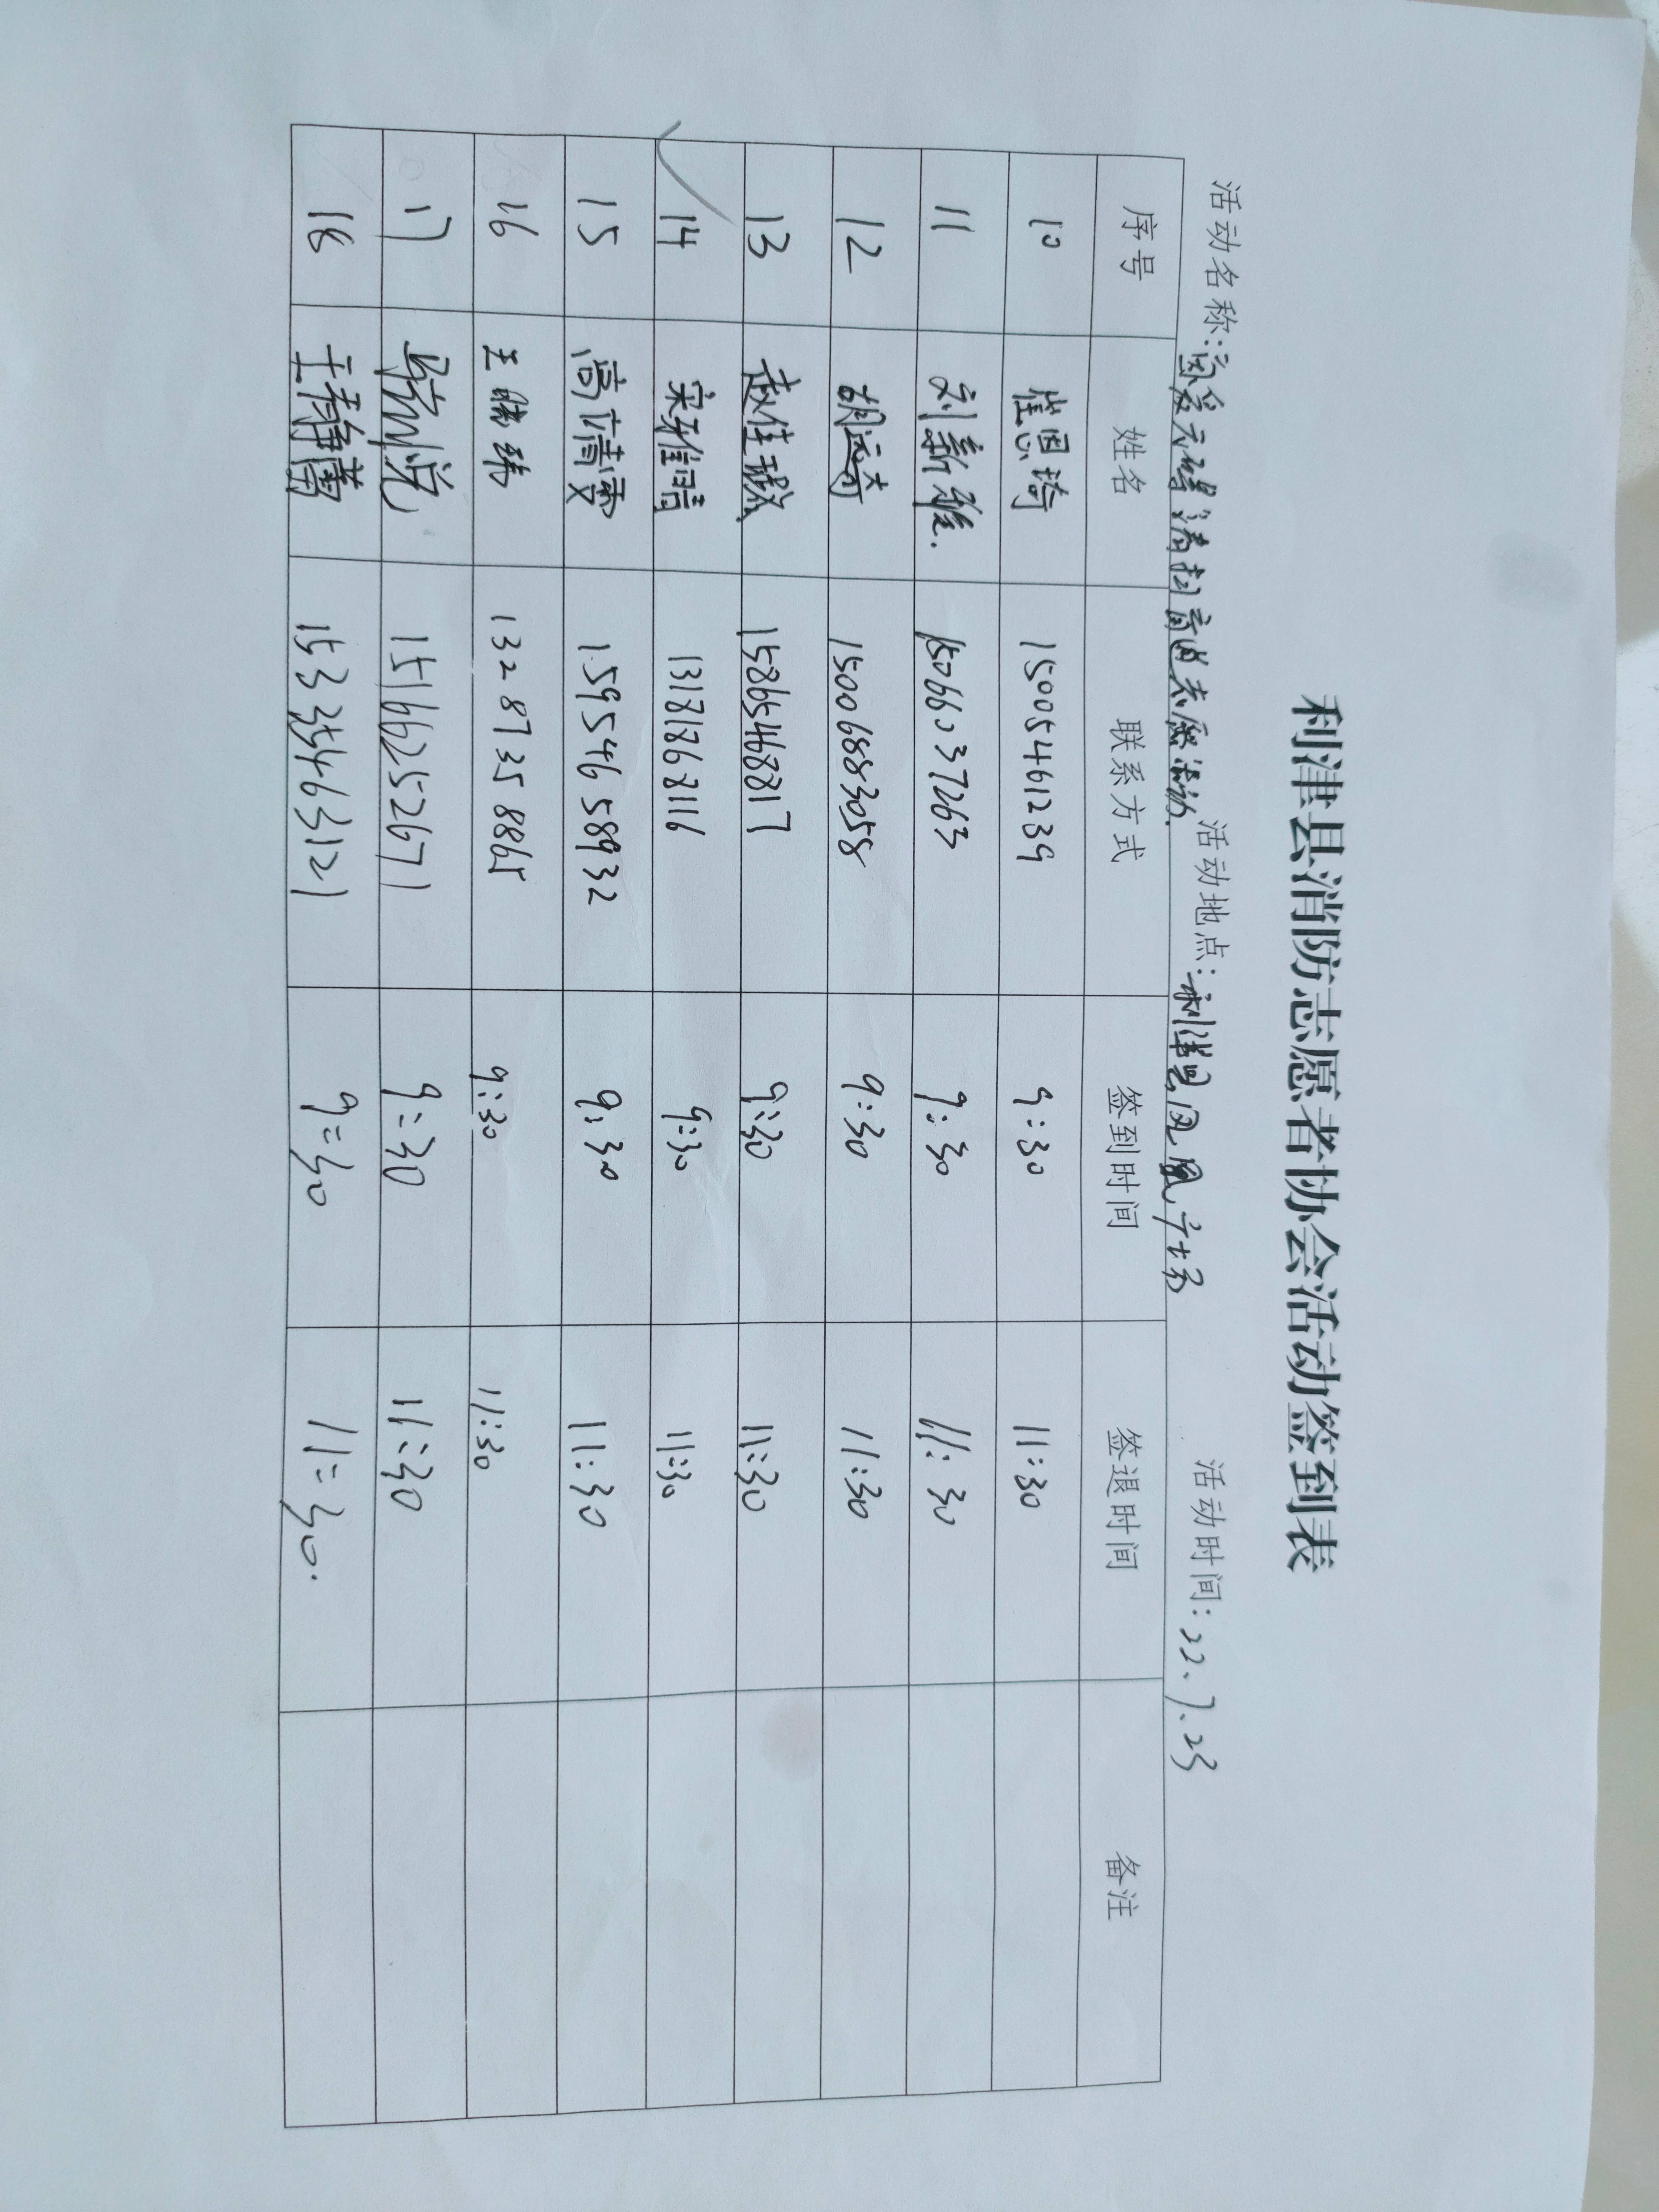 利津县消防志愿者协会活动签到表
活动名称:关爱无碍清扫盲道志愿活动 活动地点:利津县凤凰广场 活动时间:22.7.23
序号 姓名 联系方式 签到时间 签退时间 备注
10 崔恩琦 15005461239 9:30 11:30
11 刘新雅. 15066037263 9:30 11:30
12 胡运奇 15006883058 9:30 11:30
13 赵佳 15865468817 9:30 11:30
14 宋雅晴 13181768116 9:30 11:30
15 高蒨雯 15954658932 9:30 11:30
16 王 13287358865 9:30 11:30
17 悦 15166252671 9:30 11:30
18 王静 15335463121 9:30 11:30.